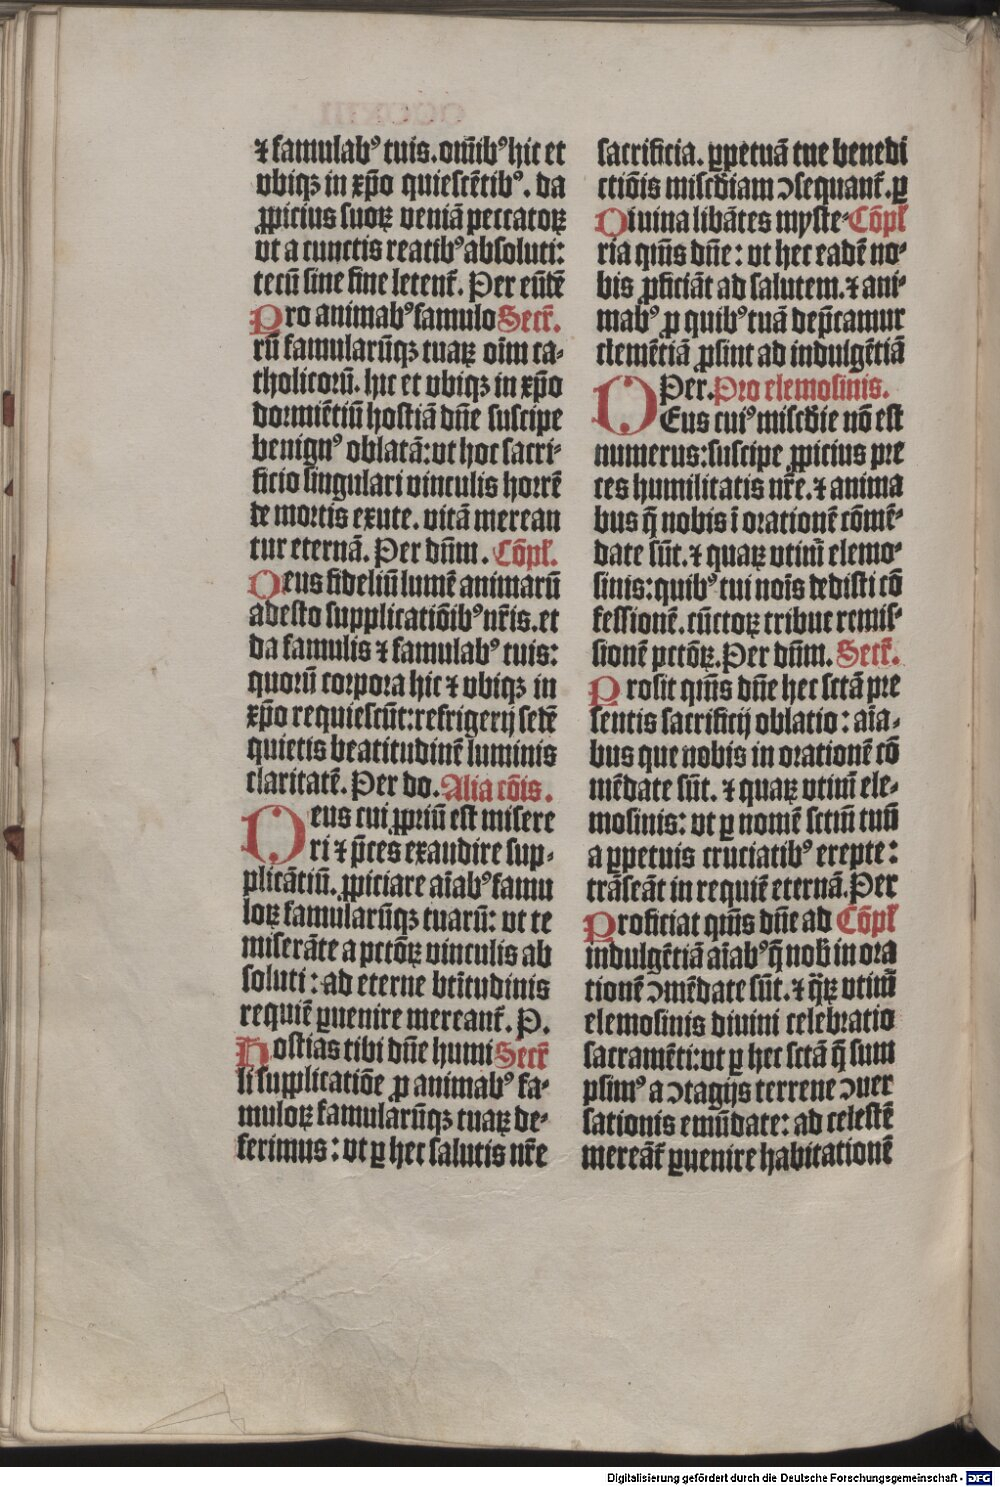 ⁊ famulabꝰ tuis. om̄ibꝰ hic et
vbiqꝫ in xp̄o quiescētibꝰ. da
ꝓpicius suoꝝ veniā peccatoꝝ
vt a cunctis reatibꝰ absoluti:
tecū sine fine letent̄. Per eūdē
Pro animabꝰ famulo Secr̄.
rū famularūqꝫ tuaꝝ oīm ca-
tholicorū. hic et vbiqꝫ in xp̄o
dormiētiū hostiā dn̄e suscipe
benignꝰ oblatā: vt hoc sacri-
ficio singulari vinculis horrē
de mortis exute. vitā merean
tur eternā. Per dn̄m. Cōpl̄.
Deus fideliū lumē animarū
adesto supplicatiōibꝰ nr̄is. et
da famulis ⁊ famulabꝰ tuis:
quorū corpora hic ⁊ vbiqꝫ in
xp̄o requiescūt: refrigerij sedē
quietis beatitudinē luminis
claritatē. Per do. Alia cōis.
Deus cui ꝓpriū est misere
ri ⁊ p̄ces exaudire sup-
plicātiū. ꝓpiciare aīabꝰ famu
loꝝ famularūqꝫ tuarū: vt te
miserāte a pctōꝝ vinculis ab
soluti: ad eterne bt̄itudinis
requiē ꝑuenire mereant̄. P.
Hostias tibi dn̄e humi Secr̄
li supplicatiōe ꝓ animabꝰ fa-
muloꝝ famularūqꝫ tuaꝝ de-
ferimus: vt ꝑ hec salutis nr̄e
sacrificia. ꝑpetuā tue benedi
ctiōis misc̄diam ↄsequant̄. ꝑ
Diuina libātes myste- Cōpl̄
ria qm̄s dn̄e: vt hec eadē no-
bis ꝓficiāt ad salutem. ⁊ ani-
mabꝰ ꝓ quibꝰ tuā dep̄camur
clemētiā ꝓsint ad indulgētiā
Per. Pro elemosinis.
DEus cuiꝰ misc̄die nō est
numerus: suscipe ꝓpicius pre
ces humilitatis nr̄e. ⁊ anima
bus q̄ nobis ī orationē cōmē-
date sūt. ⁊ quaꝝ vtim̄ elemo-
sinis: quibꝰ tui noīs dedisti cō
fessionē. cūctoꝝ tribue remis-
sionē pctōꝝ. Per dn̄m. Secr̄.
Prosit qm̄s dn̄e hec sctā pre
sentis sacrificij oblatio: aīa-
bus que nobis in orationē cō
mēdate sūt. ⁊ quaꝝ vtim̄ ele-
mosinis: vt ꝑ nomē sctm̄ tuū
a ꝑpetuis cruciatibꝰ erepte:
trāseāt in requiē eternā. Per
Proficiat qm̄s dn̄e ad Cōpl̄
indulgētiā aīabꝰ q̄ nob̄ in ora
tionē ↄmēdate sūt. ⁊ q̄ꝝ vtim̄
elemosinis diuini celebratio
sacramēti: vt ꝑ hec sctā q̄ sum
psimꝰ a ↄtagijs terrene ↄuer
sationis emūdate: ad celestē
mereāt̄ ꝑuenire habitationē
Digitalisierung gefördert durch die Deutsche Forschungsgemeinschaft - DFG